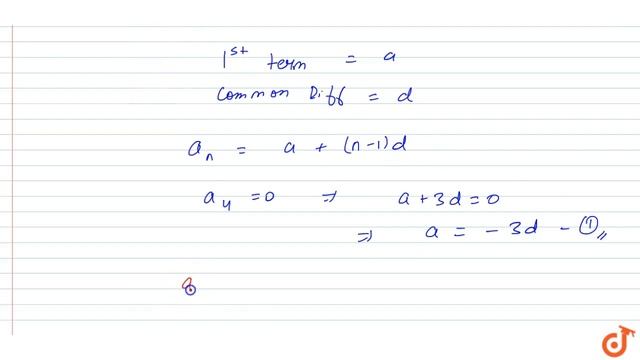 1st term = a
Common Diff = d
an = a + (n-1)d
a4 = 0 ⇒ a + 3d = 0
⇒ a = - 3d - ①